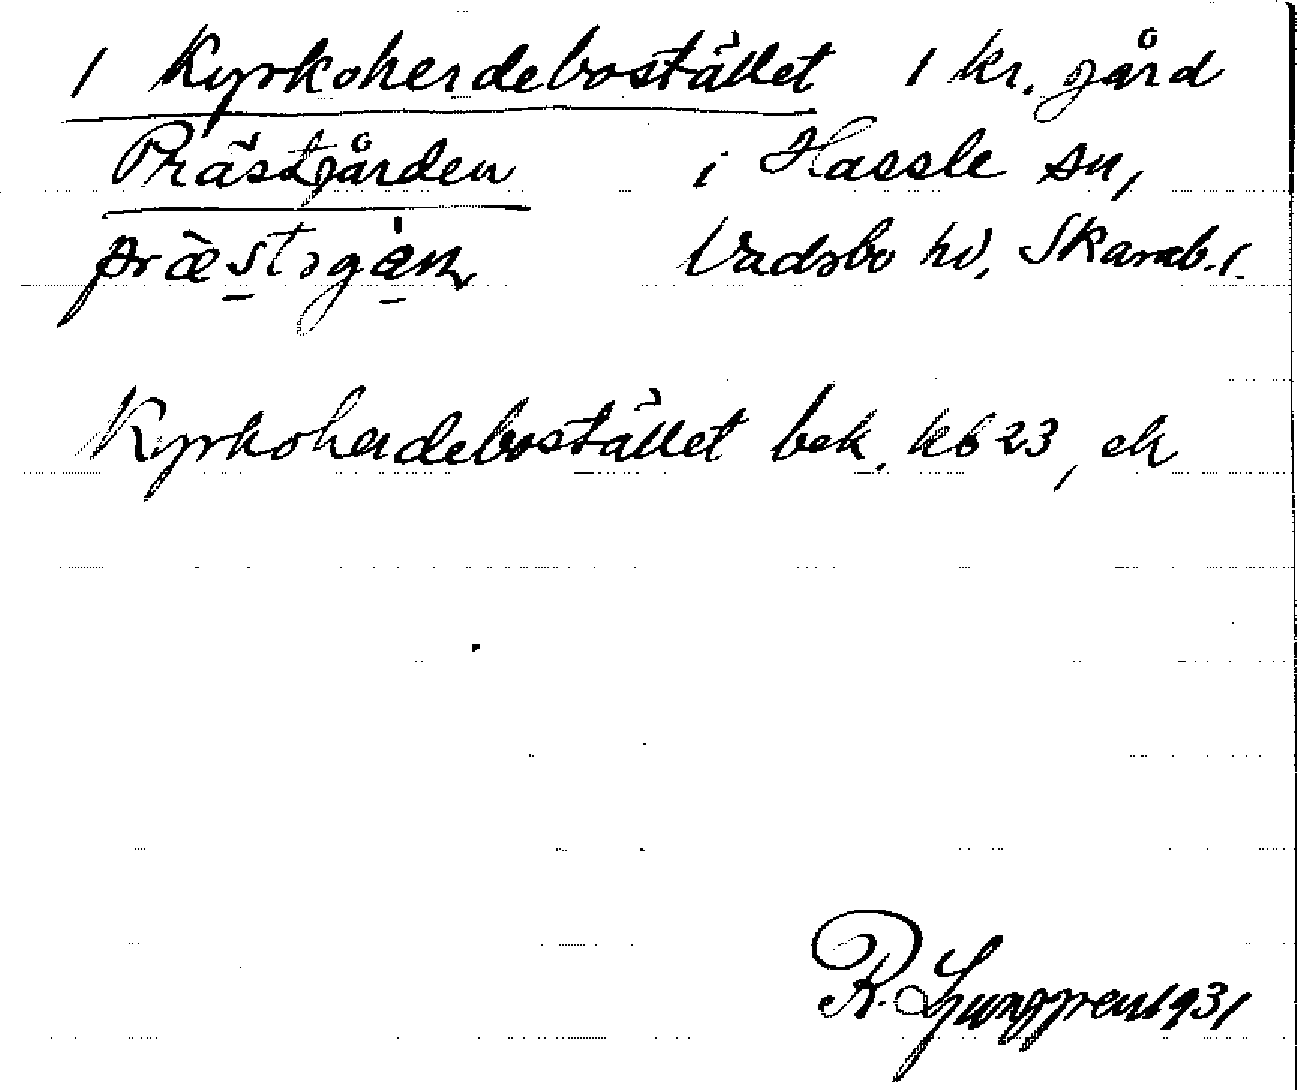 1 Kyrkoherdebostället 1 kr. gård
Prästgården i Hassle sn,
Vadsbo hd, Skarab. l.
Kyrkoherdebostället bek. kb 23, ek
R. Ljunggren 1931